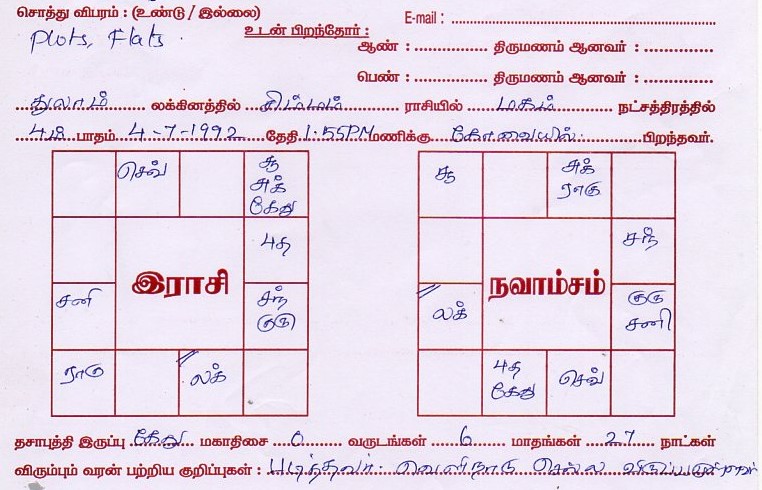 சொத்து விபரம் : (உண்டு / இல்லை)
E-mail :
Plots, Flats.
உடன் பிறந்தோர் :
ஆண் : திருமணம் ஆனவர் :
பெண் : திருமணம் ஆனவர் :
துலாம் லக்கினத்தில் சிம்மம் ராசியில் மகம் நட்சத்திரத்தில்
4ம் பாதம் 4-7-1992 தேதி 1.55PM மணிக்கு கோவையில் பிறந்தவர்.
செவ் சூ சுக் கேது
புத
இராசி
சனி சந் குரு
ராகு லக்
சூ சுக் ராகு
சந்
நவாம்சம்
லக் குரு சனி
புத கேது செவ்
தசாபுத்தி இருப்பு கேது மகாதிசை 0 வருடங்கள் 6 மாதங்கள் 27 நாட்கள்
விரும்பும் வரன் பற்றிய குறிப்புகள் : படித்தவர். வெளிநாடு செல்ல